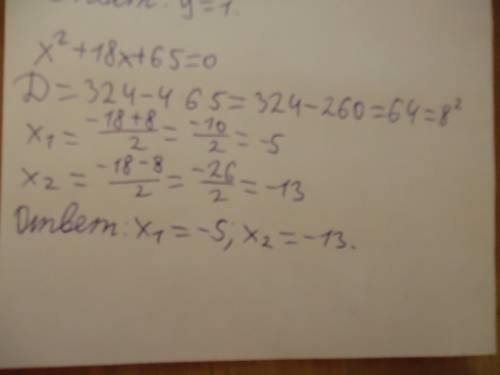 Ответ: y=1.
x²+18x+65=0
D=324-4 65=324-260=64=8²
x₁=(-18+8)/2=-10/2=-5
x₂=(-18-8)/2=-26/2=-13
Ответ: x₁=-5; x₂=-13.